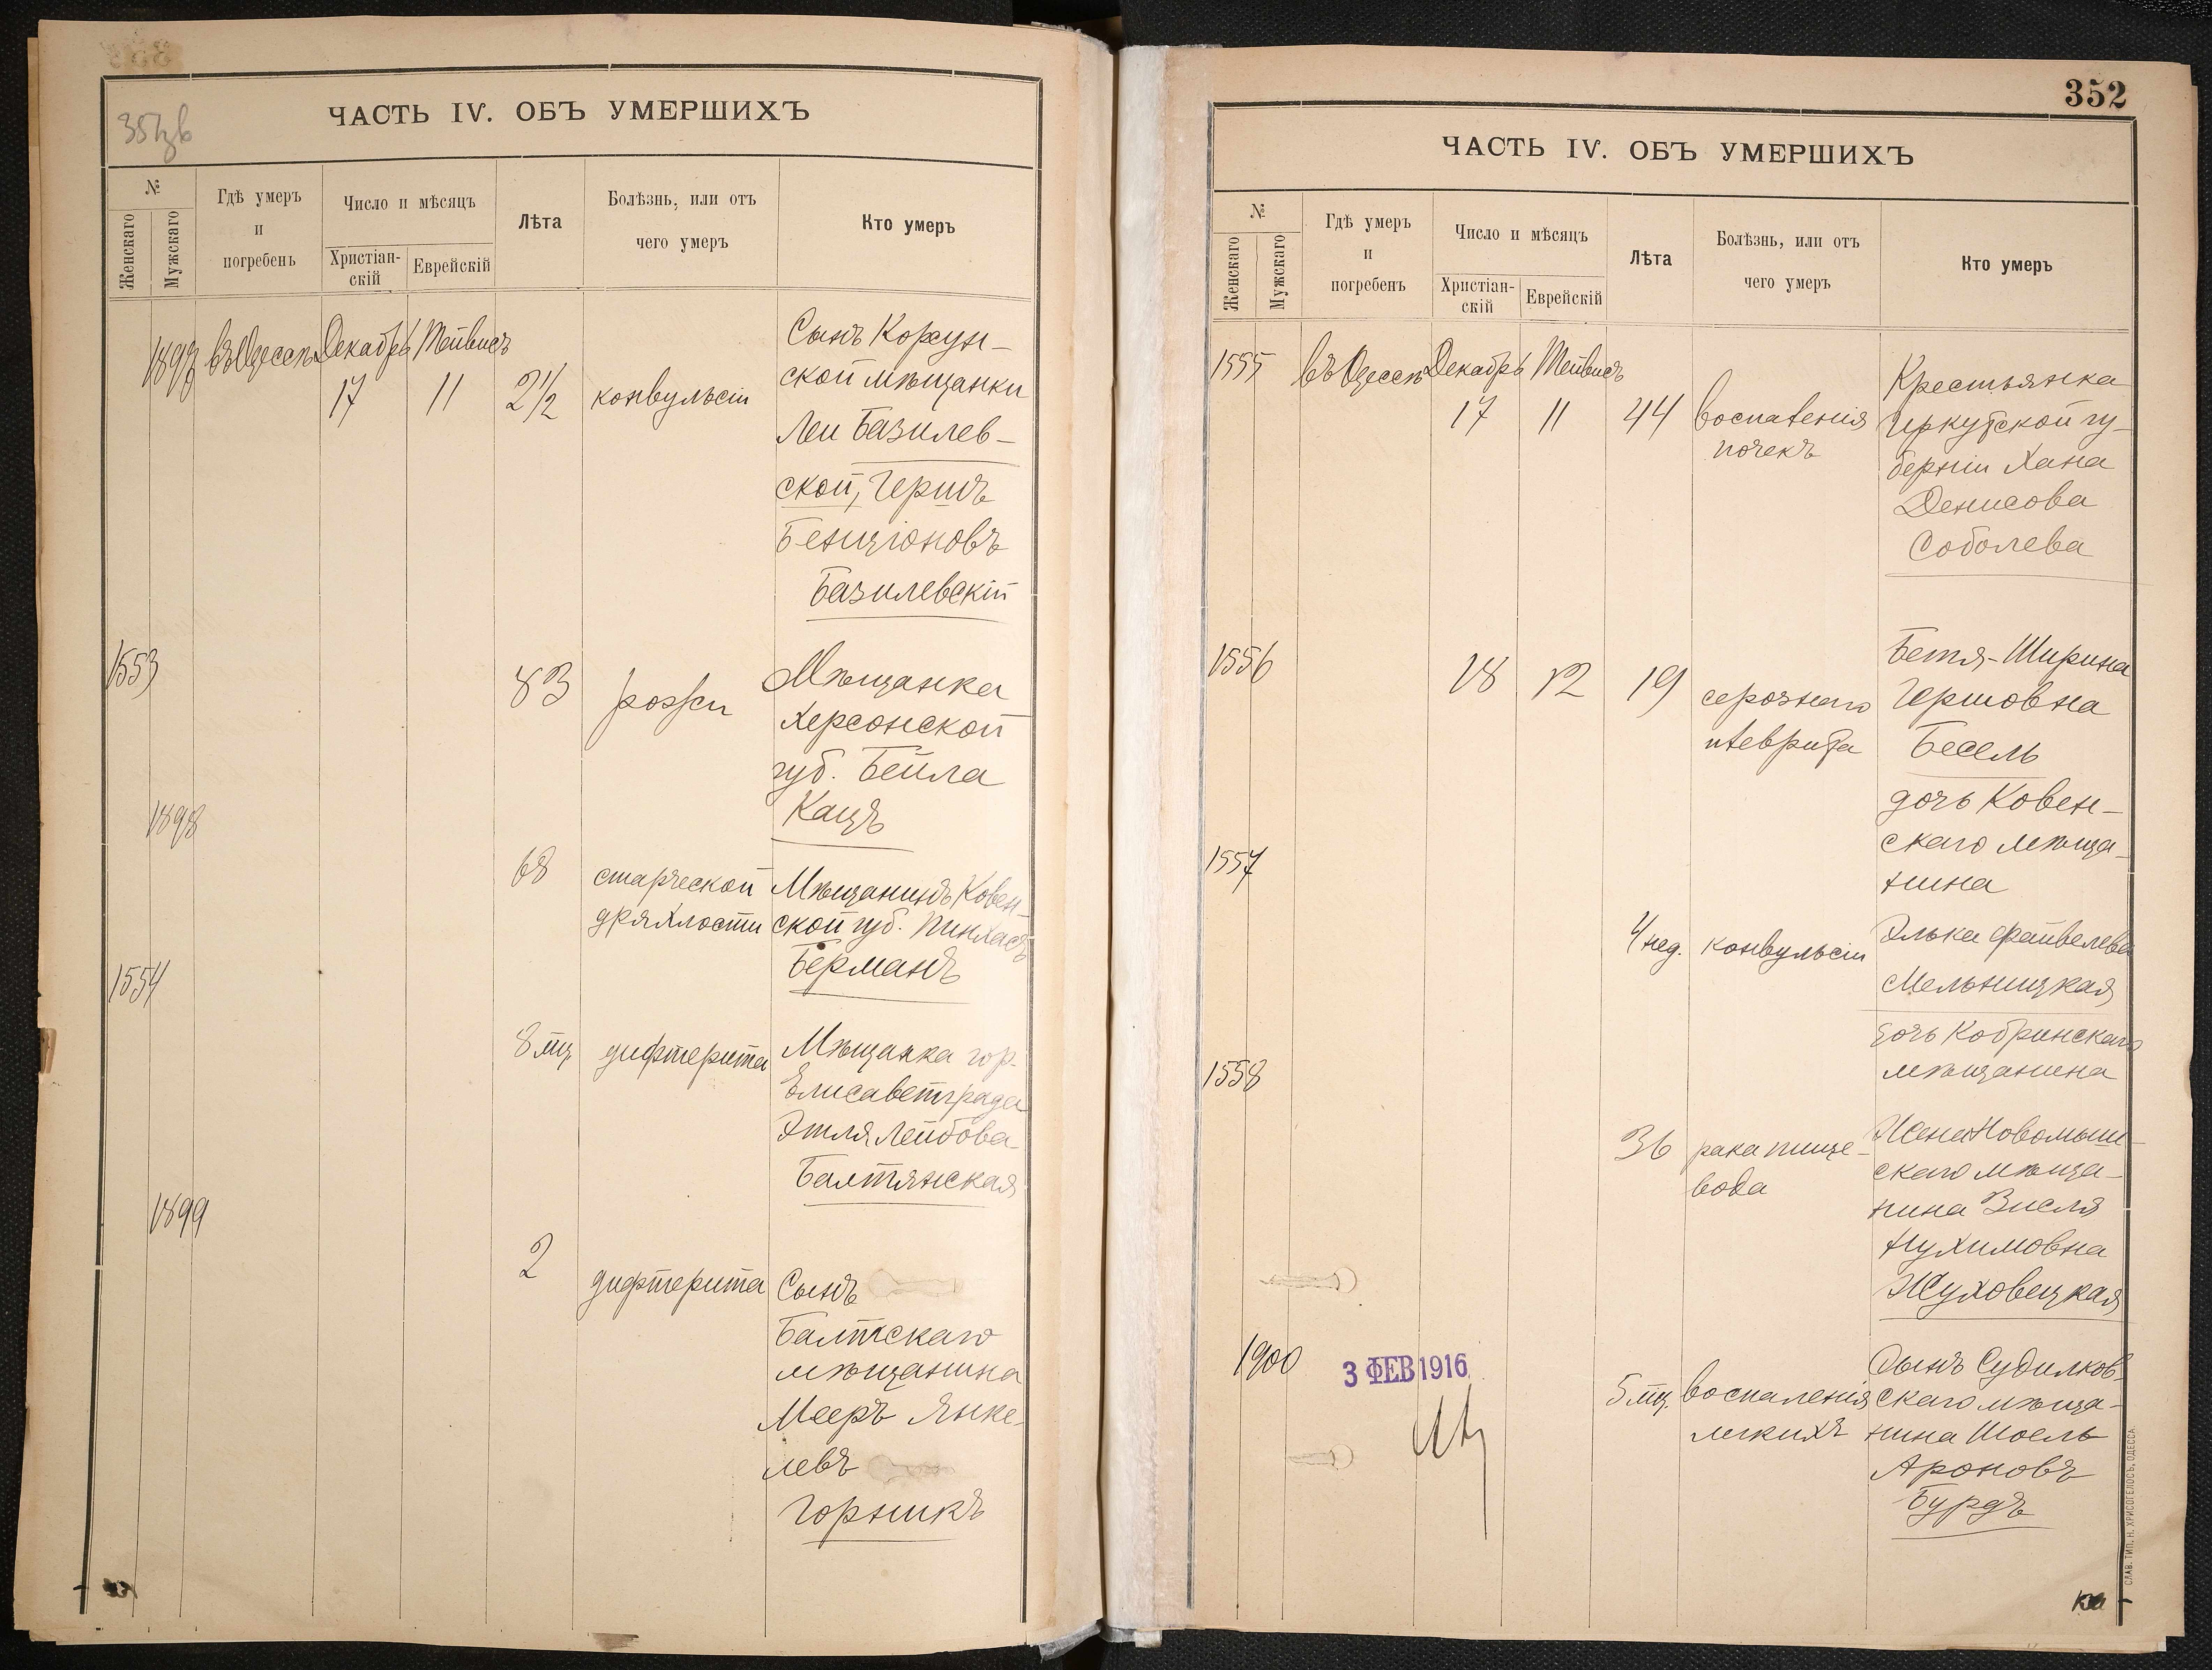 ЧАСТЬ IV. ОБЪ УМЕРШИХЪ
№
Женскаго
Мужскаго
Гдѣ умеръ
и
погребенъ
Число и мѣсяцъ
Христіан-
скій
Еврейскій
Лѣта
Болѣзнь, или отъ
чего умеръ
Кто умеръ
1897 въ Одессѣ Декабрь Тейвисъ
17 11 2½ конвульсіи
Сынъ Корсун-
ской мѣщанки
Леи Базилев-
ской, Гершъ
Бенціоновъ
Базилевскій
1553
83 рожи
Мѣщанка
Херсонской
губ. Бейла
Кацъ
1898
68 старческой
дряхлости
Мѣщанинъ Ковен-
ской губ. Пинхасъ
Берманъ
1554
8 мц дифтерита
Мѣщанка гор.
Елисаветграда
Этля Лейбова
Балтянская
1899
2
дифтерита
Сынъ
Балтскаго
мѣщанина
Мееръ Янке-
левъ
Горникъ
352
ЧАСТЬ IV. ОБЪ УМЕРШИХЪ
№
Женскаго
Мужскаго
Гдѣ умеръ
и
погребенъ
Число и мѣсяцъ
Христіан-
скій
Еврейскій
Лѣта
Болѣзнь, или отъ
чего умеръ
Кто умеръ
1555 въ Одессѣ Декабрь Тейвисъ
17 11 44 воспаленія
почекъ
Крестьянка
Иркутской гу-
берніи Хана
Денисова
Соболева
1556
18 12 19 серознаго
плеврита
Бетя-Ширина
Гершовна
Бесель
дочь Ковен-
скаго мѣща-
нина
1557
4 нед. конвульсіи
Элька Файвелева
Мельницкая
дочь Кобринскаго
мѣщанина
1558
36 рака пище-
вода
Жена Новомыш-
скаго мѣща-
нина Зисля
Нухимовна
Жуховецкая
1900
3 ФЕВ 1916
5 мц. воспаленія
легкихъ
Сынъ Судилков-
скаго мѣща-
нина Шоель
Ароновъ
Бурдъ
СЛАВ. ТИП. Н. ХРИСОГЕЛОСЪ, ОДЕССА.